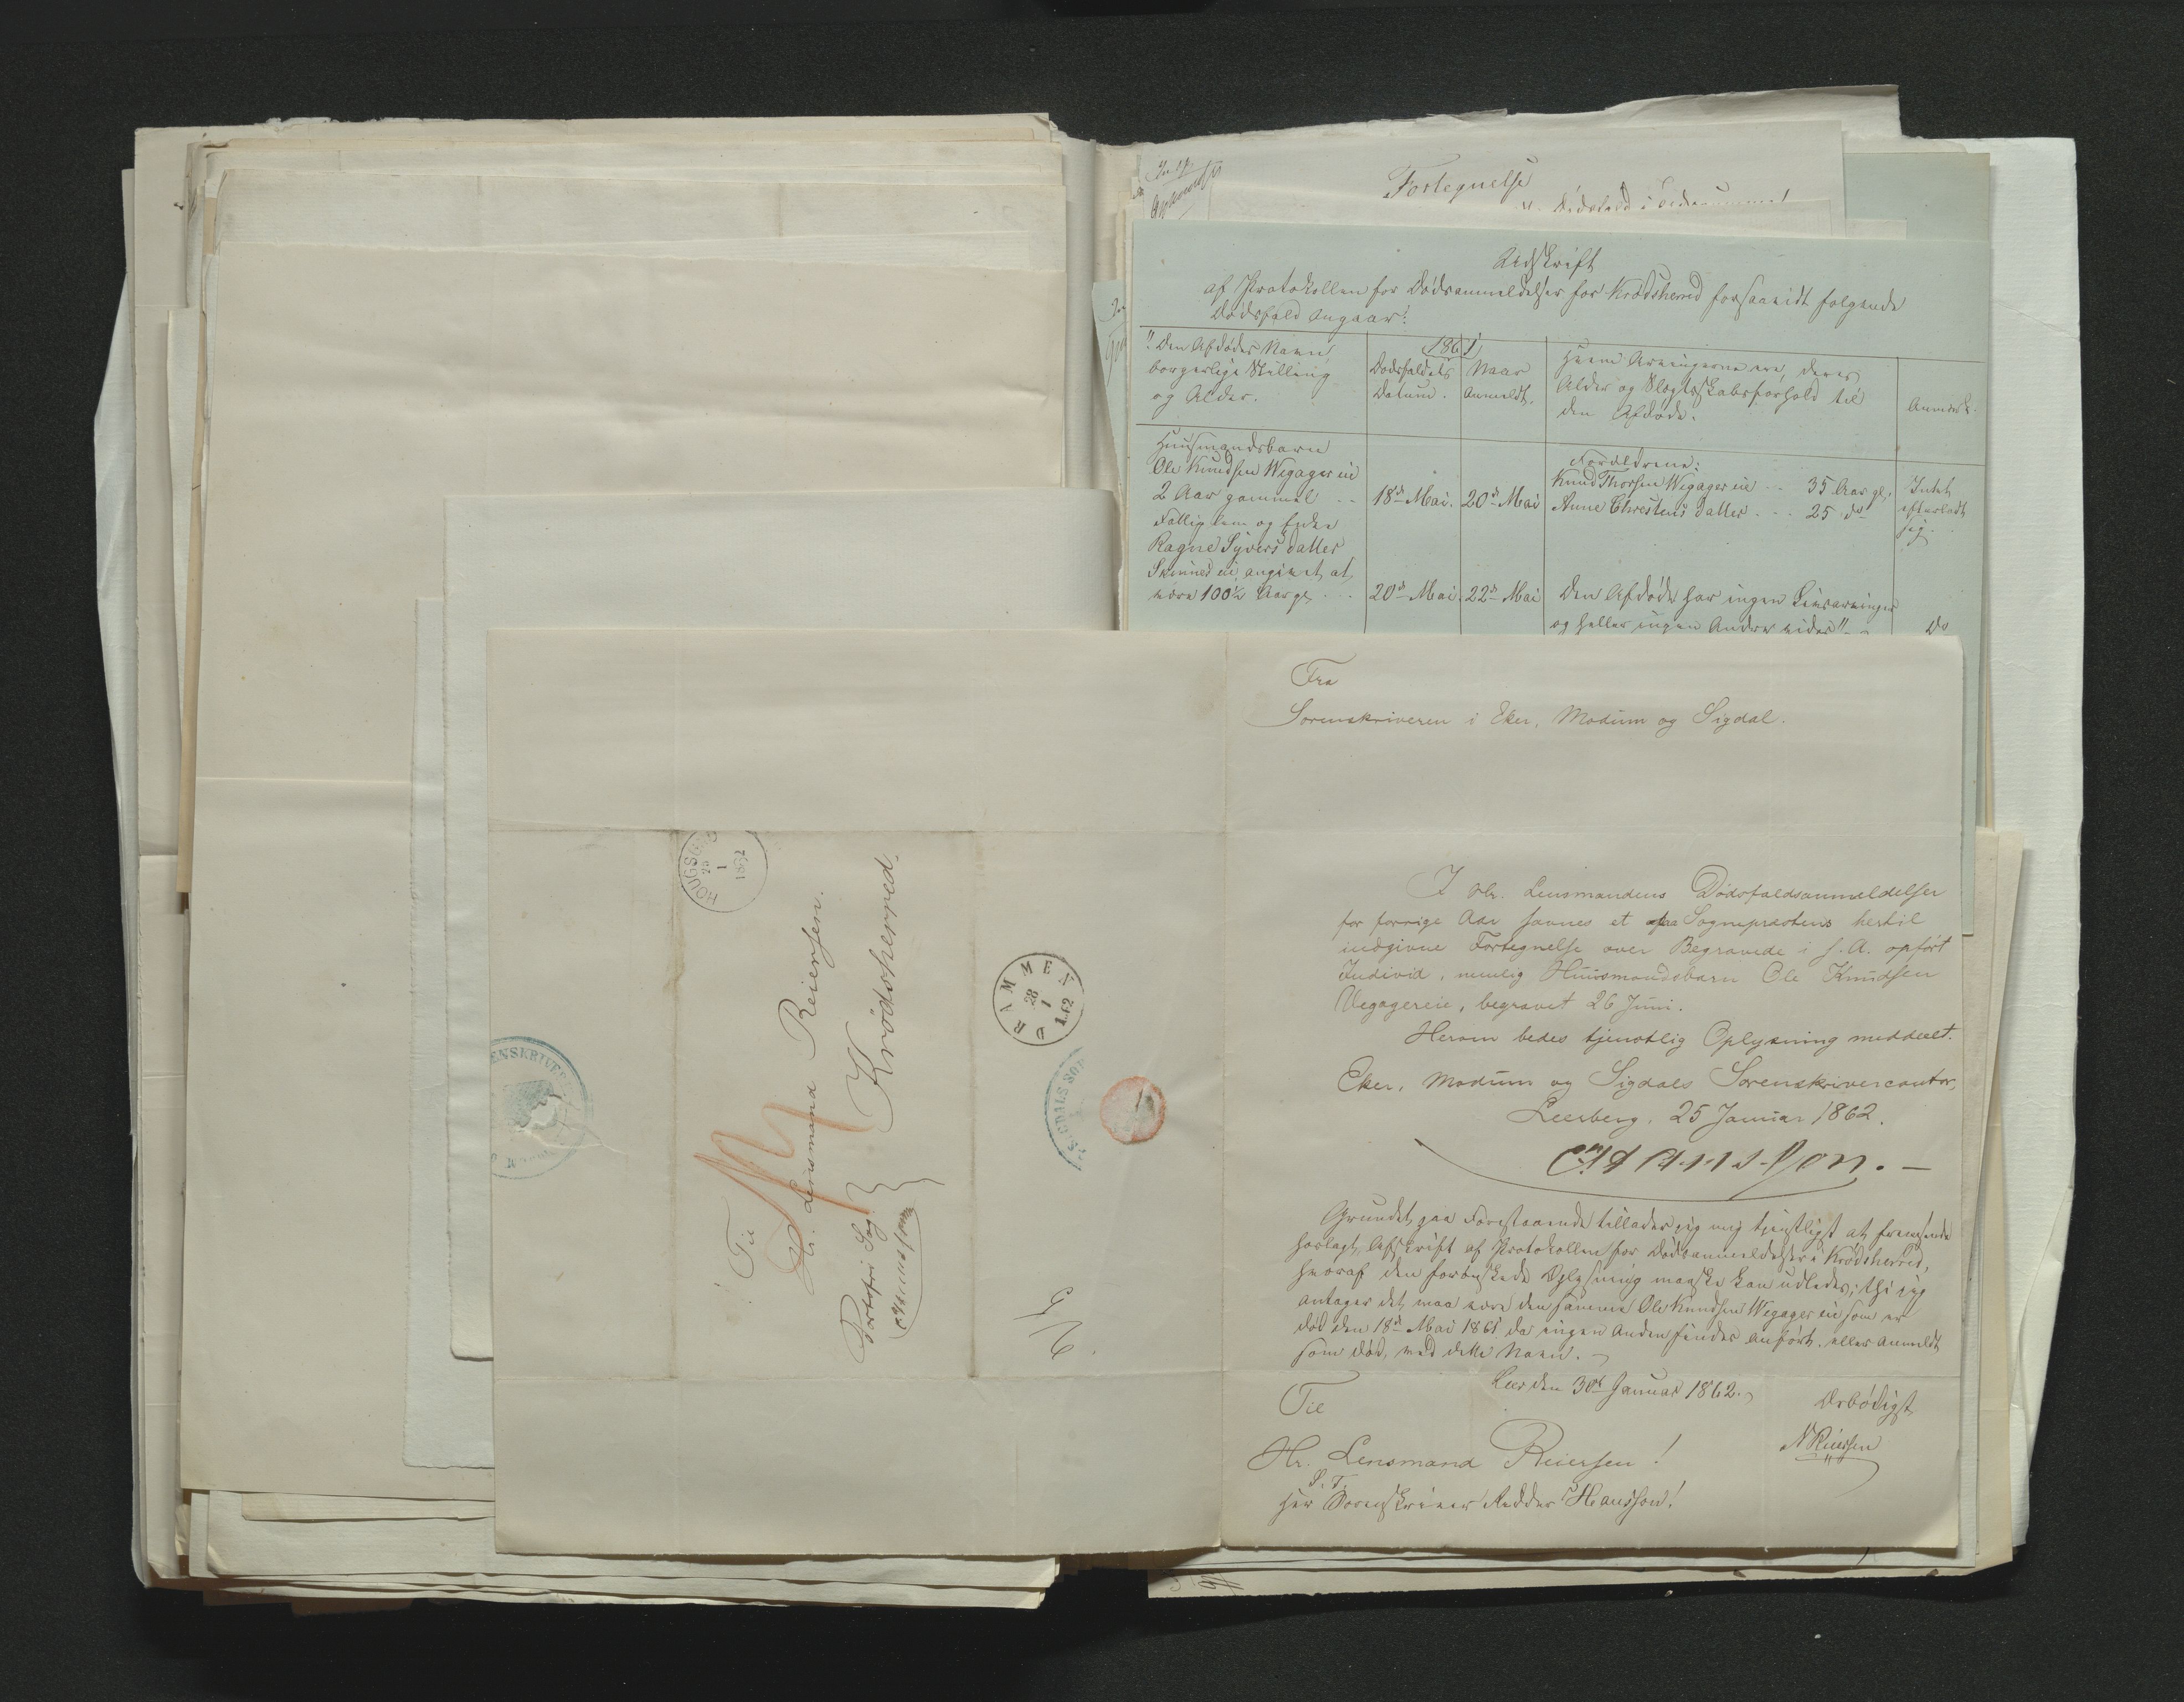 Fortegnelse
Udskrift
af Protokollen for Dødsanmeldelser for Krødsherred forsaavidt følgende
Dødsfald angaar:
1861
"Den Afdødes Navn,
borgerlige Stilling
og Alder.
Dødsfaldets
Datum.
Naar
Anmeldt.
Hvem Arvingerne ere, deres
Alder og Slægtskabsforhold til
den Afdøde.
Anmærk.
Huusmandsbarn
Ole Knudsen Wegager eie
2 Aar gammel
18de Mai.
20de Mai
Forældrene:
Knud Thorsen Wegager eie 35 Aar gl.
Anne Christensdatter 25 do
Intet
efterladt
sig
Fattiglem og Enke
Ragne Syversdatter
eie, angivet at
være 100½ Aar gl
20de Mai.
22de Mai
Den Afdøde har ingen Livsarvinger
og heller ingen Andre vides"
Do
Fra
Sorenskriveren i Eker, Modum og Sigdal.
I Hr. Lensmandens Dødsfaldsanmeldelser
for forrige Aar savnes et paa Sognepræstens hertil
indgivne Fortegnelse over Begravede i f. A. opført
Individ, nemlig Huusmandsbarn Ole Knudsen
Vegagereie, begravet 26 Juni.
Herom bedes tjenstlig Oplysning meddeelt.
Eker, Modum og Sigdals Sorenskrivercontor,
Leerberg, 25 Januar 1862.
Hansson.
Grundet paa Forestaaende tillader jeg mig tjenstligst at fremsende
hoslagt Afskrift af Protokollen for Dødsanmeldelser i Krødsherred,
hvoraf den forønskede Oplysning maaske kan udledes; thi jeg
antager det maa være den samme Ole Knudsen Wegager eie som er
død den 18de Mai 1861 da ingen Anden findes anført eller anmeldt
som død, med dette Navn.
Leer den 30te Januar 1862.
Ærbødigst
N Reiersen
Til
Hr. Lensmand Reiersen!
S. T.
Herr Sorenskriver Ridder Hansson!
HOUGSU
28
1
1862
Til
Hr. Lensmand Reiersen.
Krødsherred.
Portofri Sag
Hansson
DRAMMEN
28
1
1862
ENSKRIVE
GDALS SOR